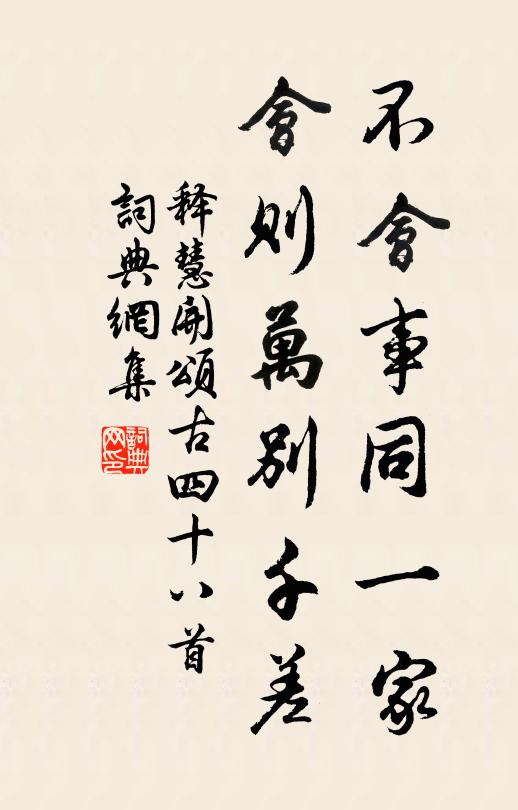 不會事同一家
會則萬別千差
释慧開頌古四十八首
詞典網集
詞典网印